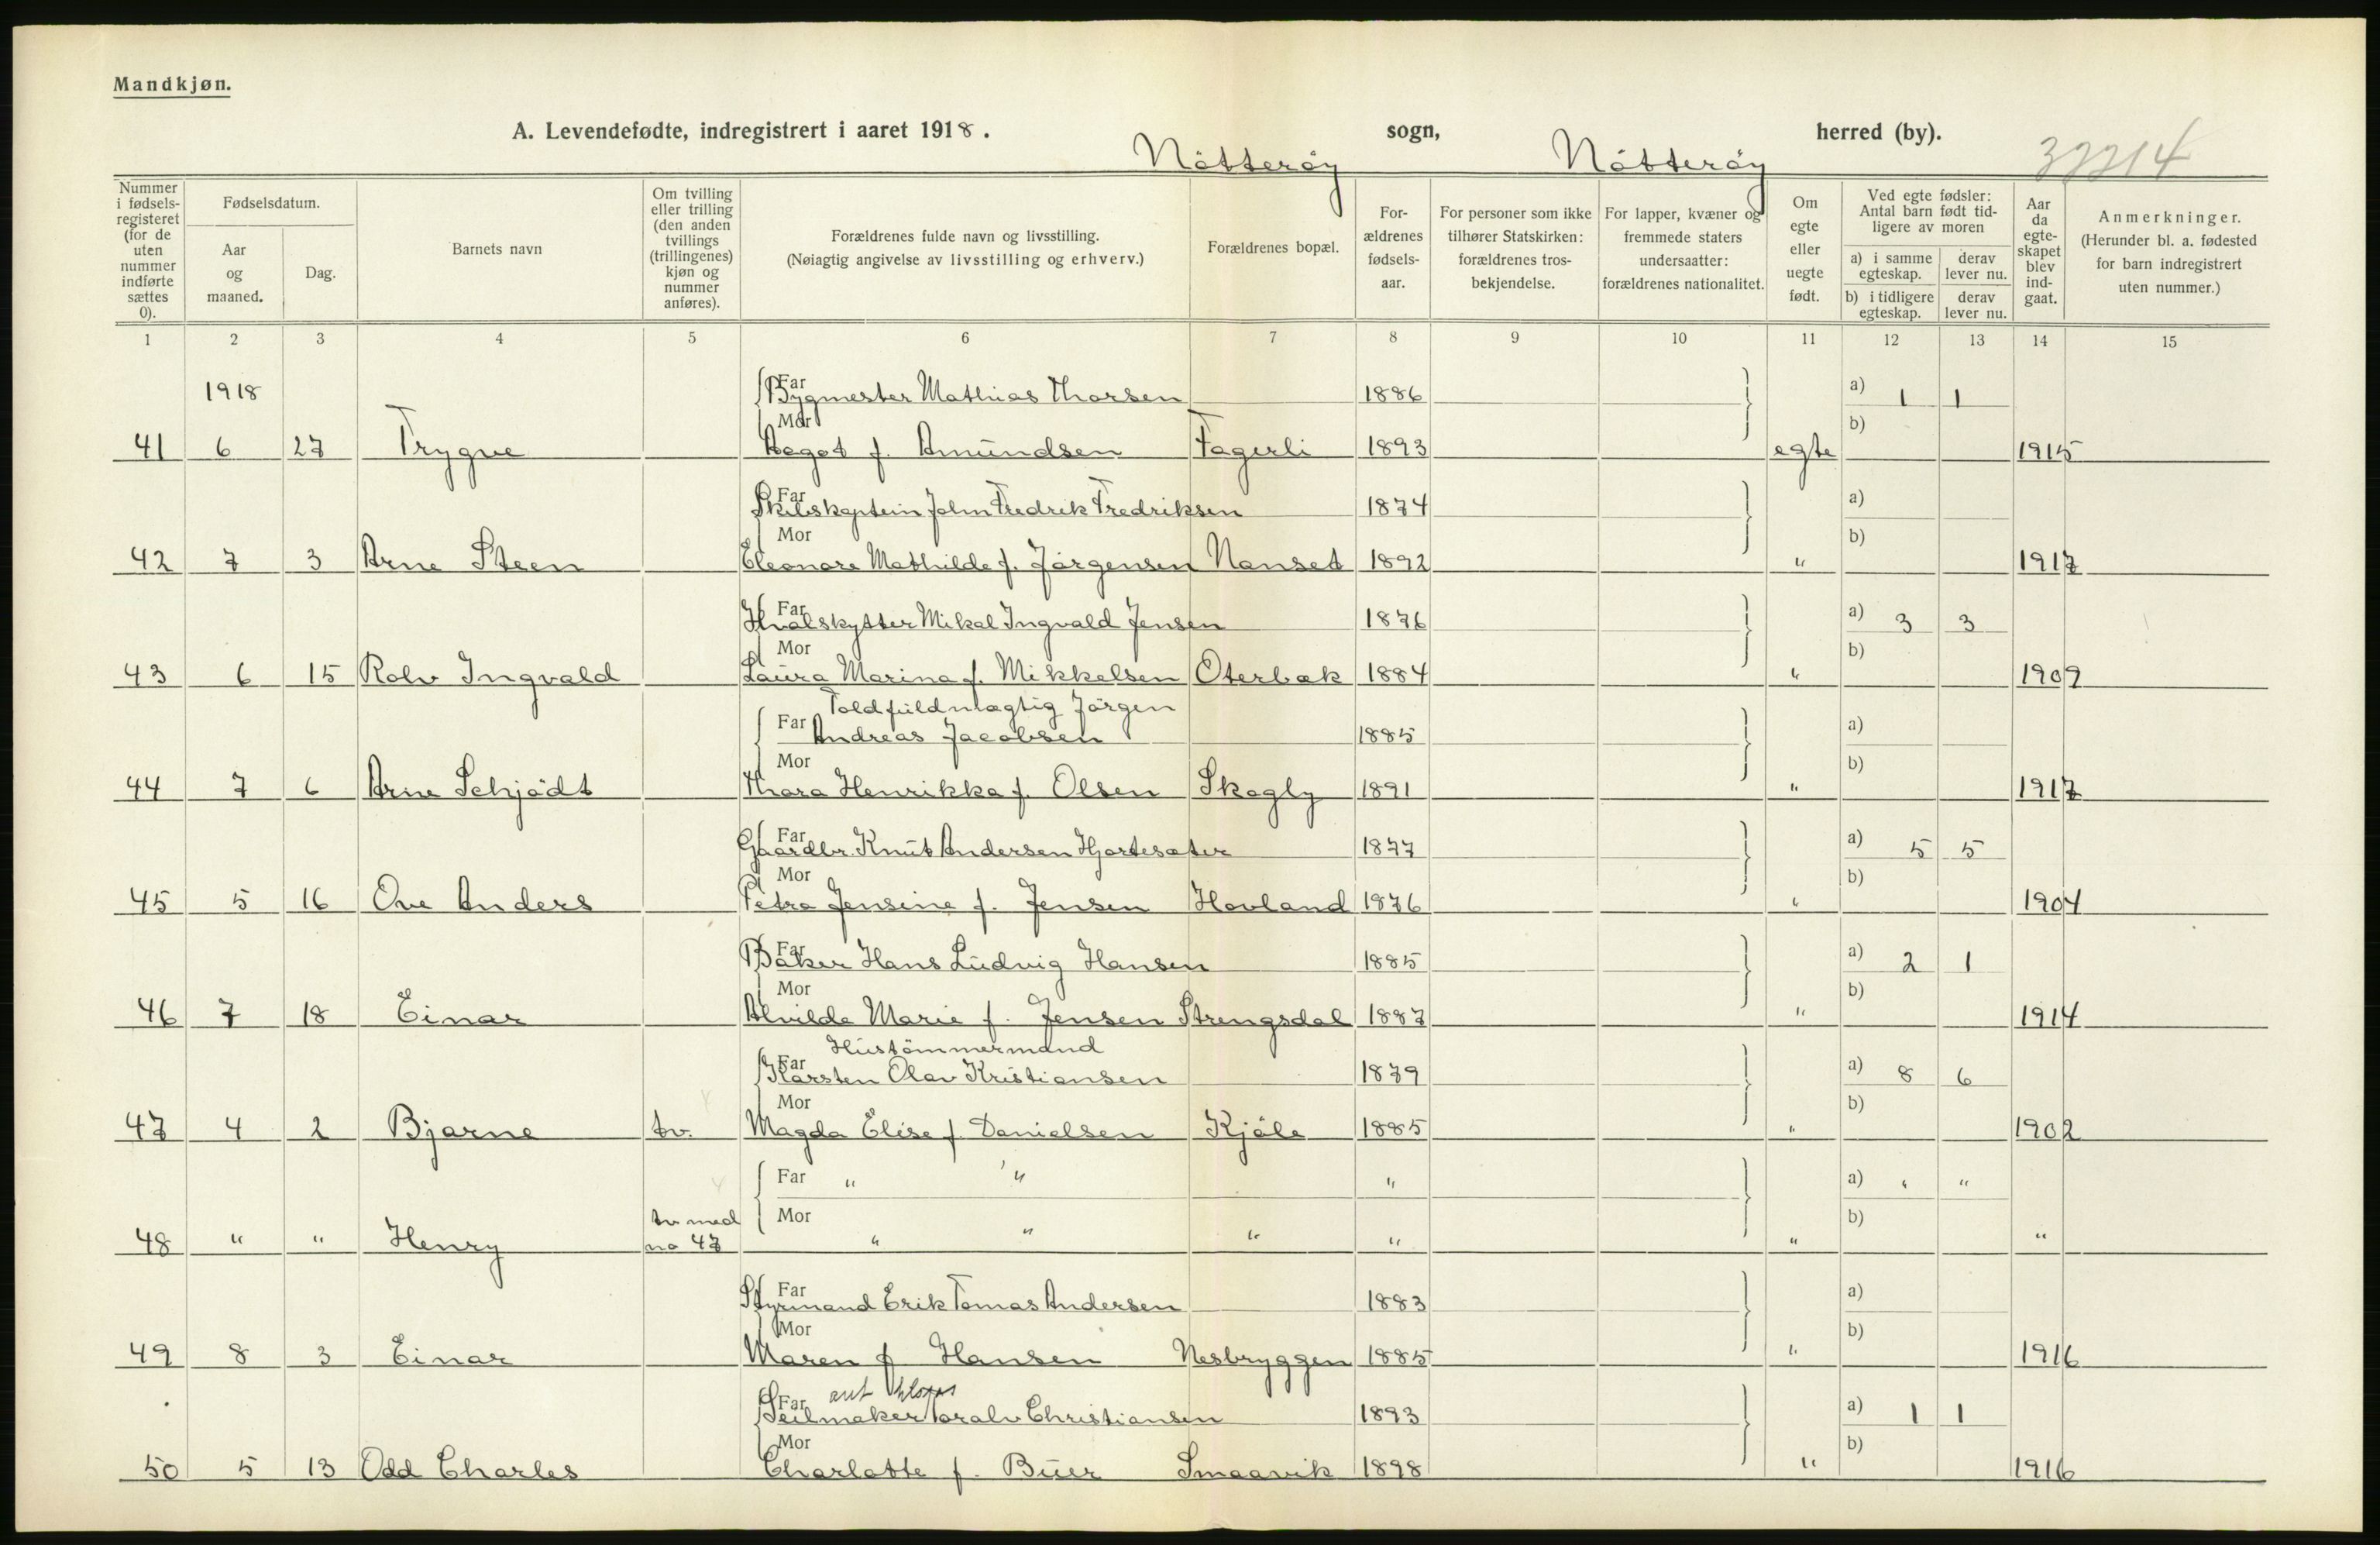 Mandkjøn.
A. Levendefødte, indregistrert i aaret 1918. Nötteröy sogn, Nötteröy herred (by).
Nummer i fødsels-registeret (for de uten nummer indførte sættes 0).
Fødselsdatum.
Aar og maaned.
Dag.
Barnets navn
Om tvilling eller trilling (den anden tvillings (trillingenes) kjøn og nummer anføres).
Forældrenes fulde navn og livsstilling.
(Nøiagtig angivelse av livsstilling og erhverv.)
Forældrenes bopæl.
For-ældrenes fødsels-aar.
For personer som ikke tilhører Statskirken: forældrenes tros-bekjendelse.
For lapper, kvæner og fremmede staters undersaatter: forældrenes nationalitet.
Om egte eller uegte født.
Ved egte fødsler: Antal barn født tid-ligere av moren
a) i samme egteskap. derav lever nu.
b) i tidligere egteskap. derav lever nu.
Aar da egte-skapet blev ind-gaat.
Anmerkninger.
(Herunder bl. a. fødested for barn indregistrert uten nummer.)
1 2 3 4 5 6 7 8 9 10 11 12 13 14 15
1918 Far Bygmester Mathias Thorsen 1886 a) 1 1
41 6 27 Trygve Mor Aagot f. Amundsen Fagerli 1893 egte b) 1915
Far Skibskaptein John Fredrik Fredriksen 1874 a)
42 7 3 Arne Steen Mor Eleonore Mathilde f. Jörgensen Nanset 1892 " b) 1917
Far Hvalskytter Mikal Ingvald Jensen 1876 a) 3 3
43 6 15 Rolv Ingvald Mor Laura Marina f. Mikkelsen Oterbæk 1884 " b) 1909
Toldfuldmægtig Jörgen
Far Andreas Jacobsen 1885 a)
44 7 6 Arne Schjödt Mor Thora Henrikka f. Olsen Skogly 1891 " b) 1917
Far Gaardbr. Knut Andersen Hjortesæter 1877 a) 5 5
45 5 16 Ove Anders Mor Petra Jensine f. Jensen Hovland 1876 " b) 1904
Far Baker Hans Ludvig Hansen 1885 a) 2 1
46 7 18 Einar Mor Alvilde Marie f. Jensen Strengsdal 1887 " b) 1914
Hustömmermand
Far Karsten Olav Kristiansen 1879 a) 8 6
47 4 2 Bjarne tv. Mor Magda Elise f. Danielsen Kjöle 1885 " b) 1902
Far " " " a) " "
48 " " Henry tv. med no 47 Mor " " " " " b) "
Far Styrmand Erik Tomas Andersen 1883 a)
49 8 3 Einar Mor Maren f Hansen Nesbryggen 1885 " b) 1916
Far Seilmaker Toralv Christiansen 1893 a) 1 1
50 5 13 Odd Charles Mor Charlotte f. Buer Smaavik 1898 " b) 1916